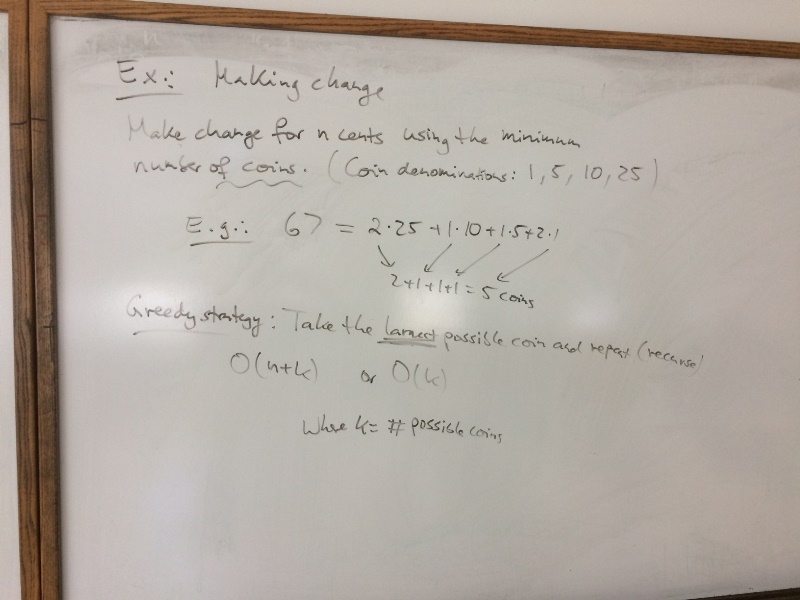 Ex.: Making change
Make change for n cents using the minimum
number of coins. (Coin denominations: 1, 5, 10, 25)
E.g.: 67 = 2·25 + 1·10 + 1·5 + 2·1
2+1+1+1 = 5 coins
Greedy strategy: Take the largest possible coin and repeat (recurse)
O(n+k) or O(k)
Where k = # possible coins